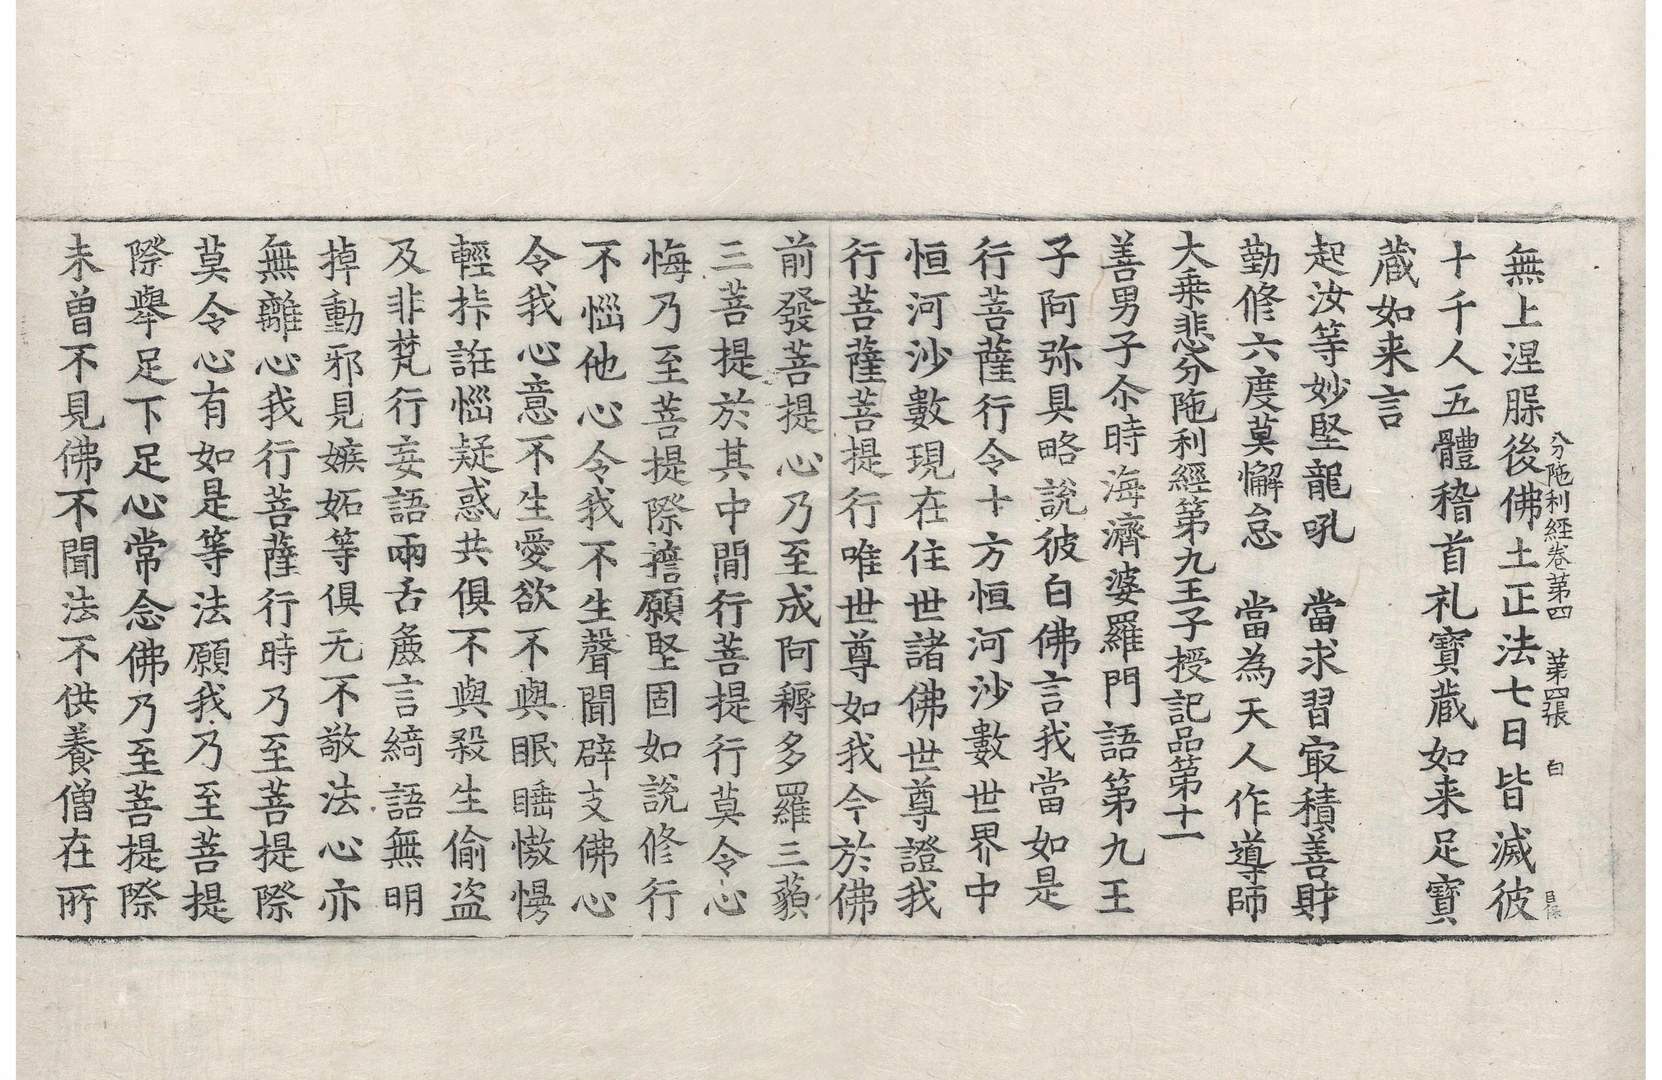 分陁利經卷第四　第四張　白
無上涅槃後佛土正法七日皆滅彼
十千人五體稽首礼寶蔵如来足寶
蔵如来言
起汝等妙堅龍吼　當求習㝡積善財
勤修六度莫懈怠　當為天人作導師
大乗悲分陁利經第九王子授記品第十一
善男子尒時海濟婆羅門語第九王
子阿弥具略說彼白佛言我當如是
行菩薩行令十方恒河沙數世界中
恒河沙數現在住世諸佛世尊證我
行菩薩菩提行唯世尊如我今於佛
前發菩提心乃至成阿耨多羅三藐
三菩提於其中間行菩提行莫令心
悔乃至菩提際擔願堅固如說修行
不惱他心令我不生聲聞辟支佛心
令我心意不生愛欲不與眠睡憿慢
輕挊誑惱疑惑共俱不與殺生偷盗
及非梵行妄語兩舌麁言綺語無明
掉動邪見嫉妬等俱无不敬法心亦
無離心我行菩薩行時乃至菩提際
莫令心有如是等法願我乃至菩提
際舉足下足心常念佛乃至菩提際
未曽不見佛不聞法不供養僧在所